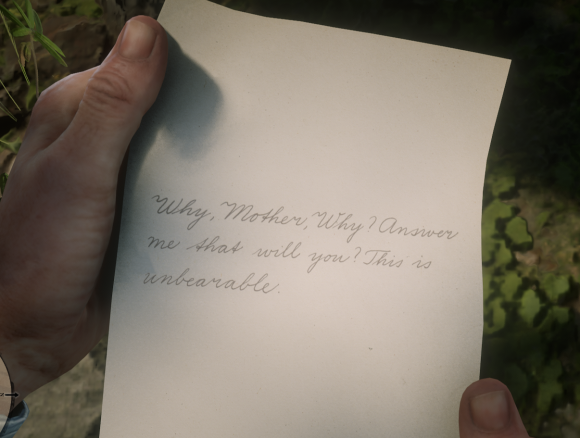 Why, Mother, Why? Answer
me that will you? This is
unbearable.